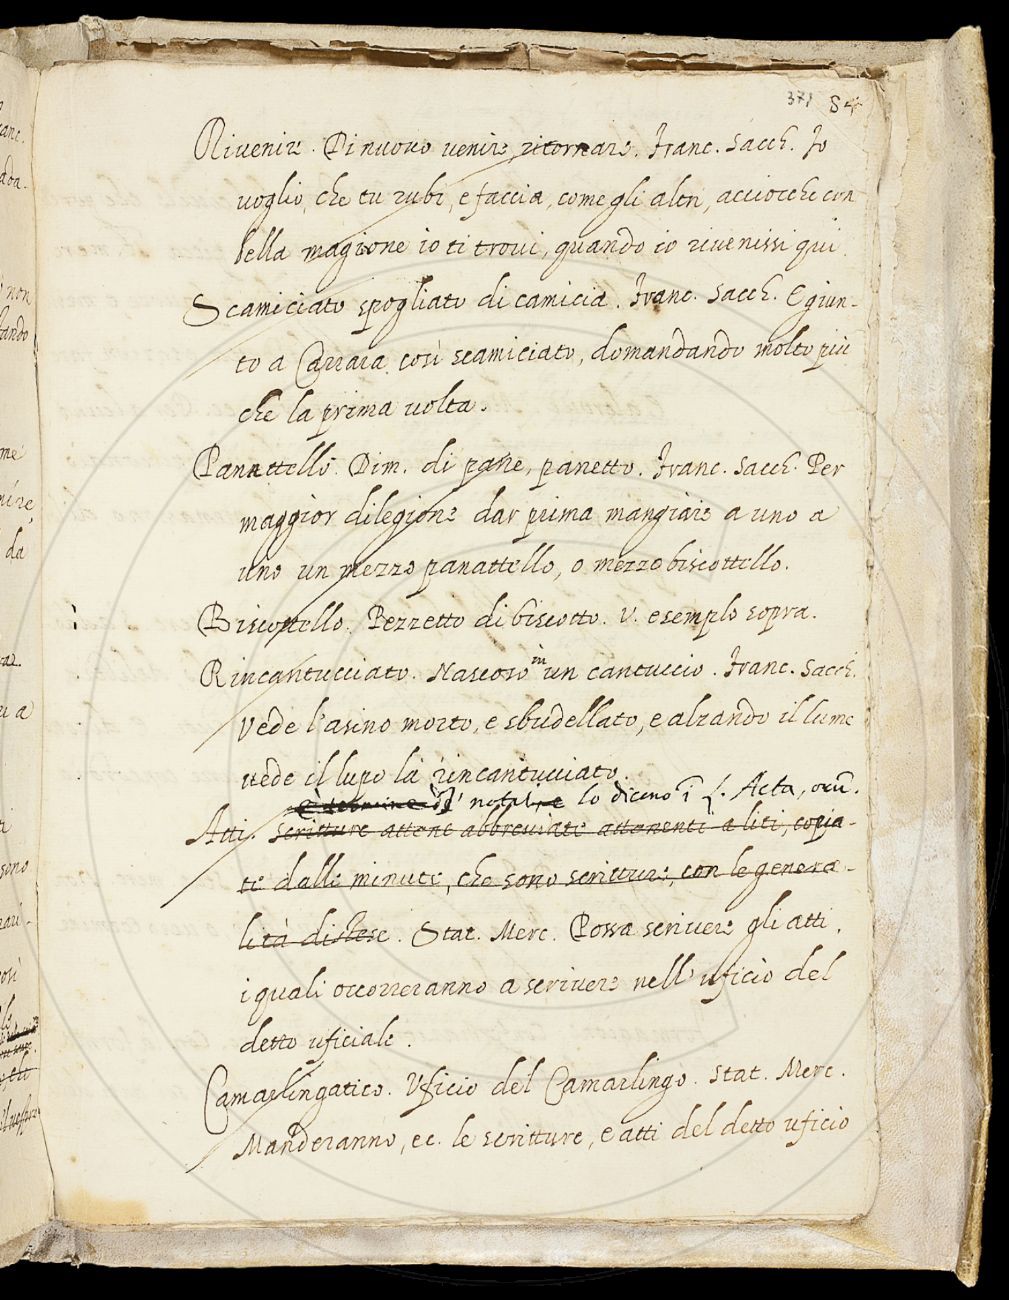 371 84
Rivenire. Di nuovo venire ritornare. Franc. Sacch. Io
voglio, che tu rubi, e faccia, come gli altri, acciocche con
bella magione io ti trovi, quando io rivenissi qui.
Scamiciato spogliato di camicia. Franc. Sacch. E giun-
to a Carrara così scamiciato, domandando molto più
che la prima volta.
Panattello. Dim. di pane, panetto. Franc. Sacch. Per
maggior dilegione dar prima mangiare a uno a
uno un mezzo panattello, o mezzo biscottello.
Biscottello. Pezzetto di biscotto. V. esemplo sopra.
Rincantucciato. Nascoso in un cantuccio. Franc. Sacch.
Vede l'asino morto, e sbudellato, e alzando il lume
vede il lupo là rincantucciato.
lo dicono ĩ L. Acta, orũ.
Atti. Scritture attene abbreviate attenenti a liti, copia-
te dalle minute, che sono scritture, con le genera-
lità distese. Stat. Merc. Possa scrivere gli atti,
i quali occorreranno a scrivere nell'uficio del
detto uficiale.
Camarlingatico. Uficio del Camarlingo. Stat. Merc.
Manderanno, ec. le scritture, e atti del detto uficio